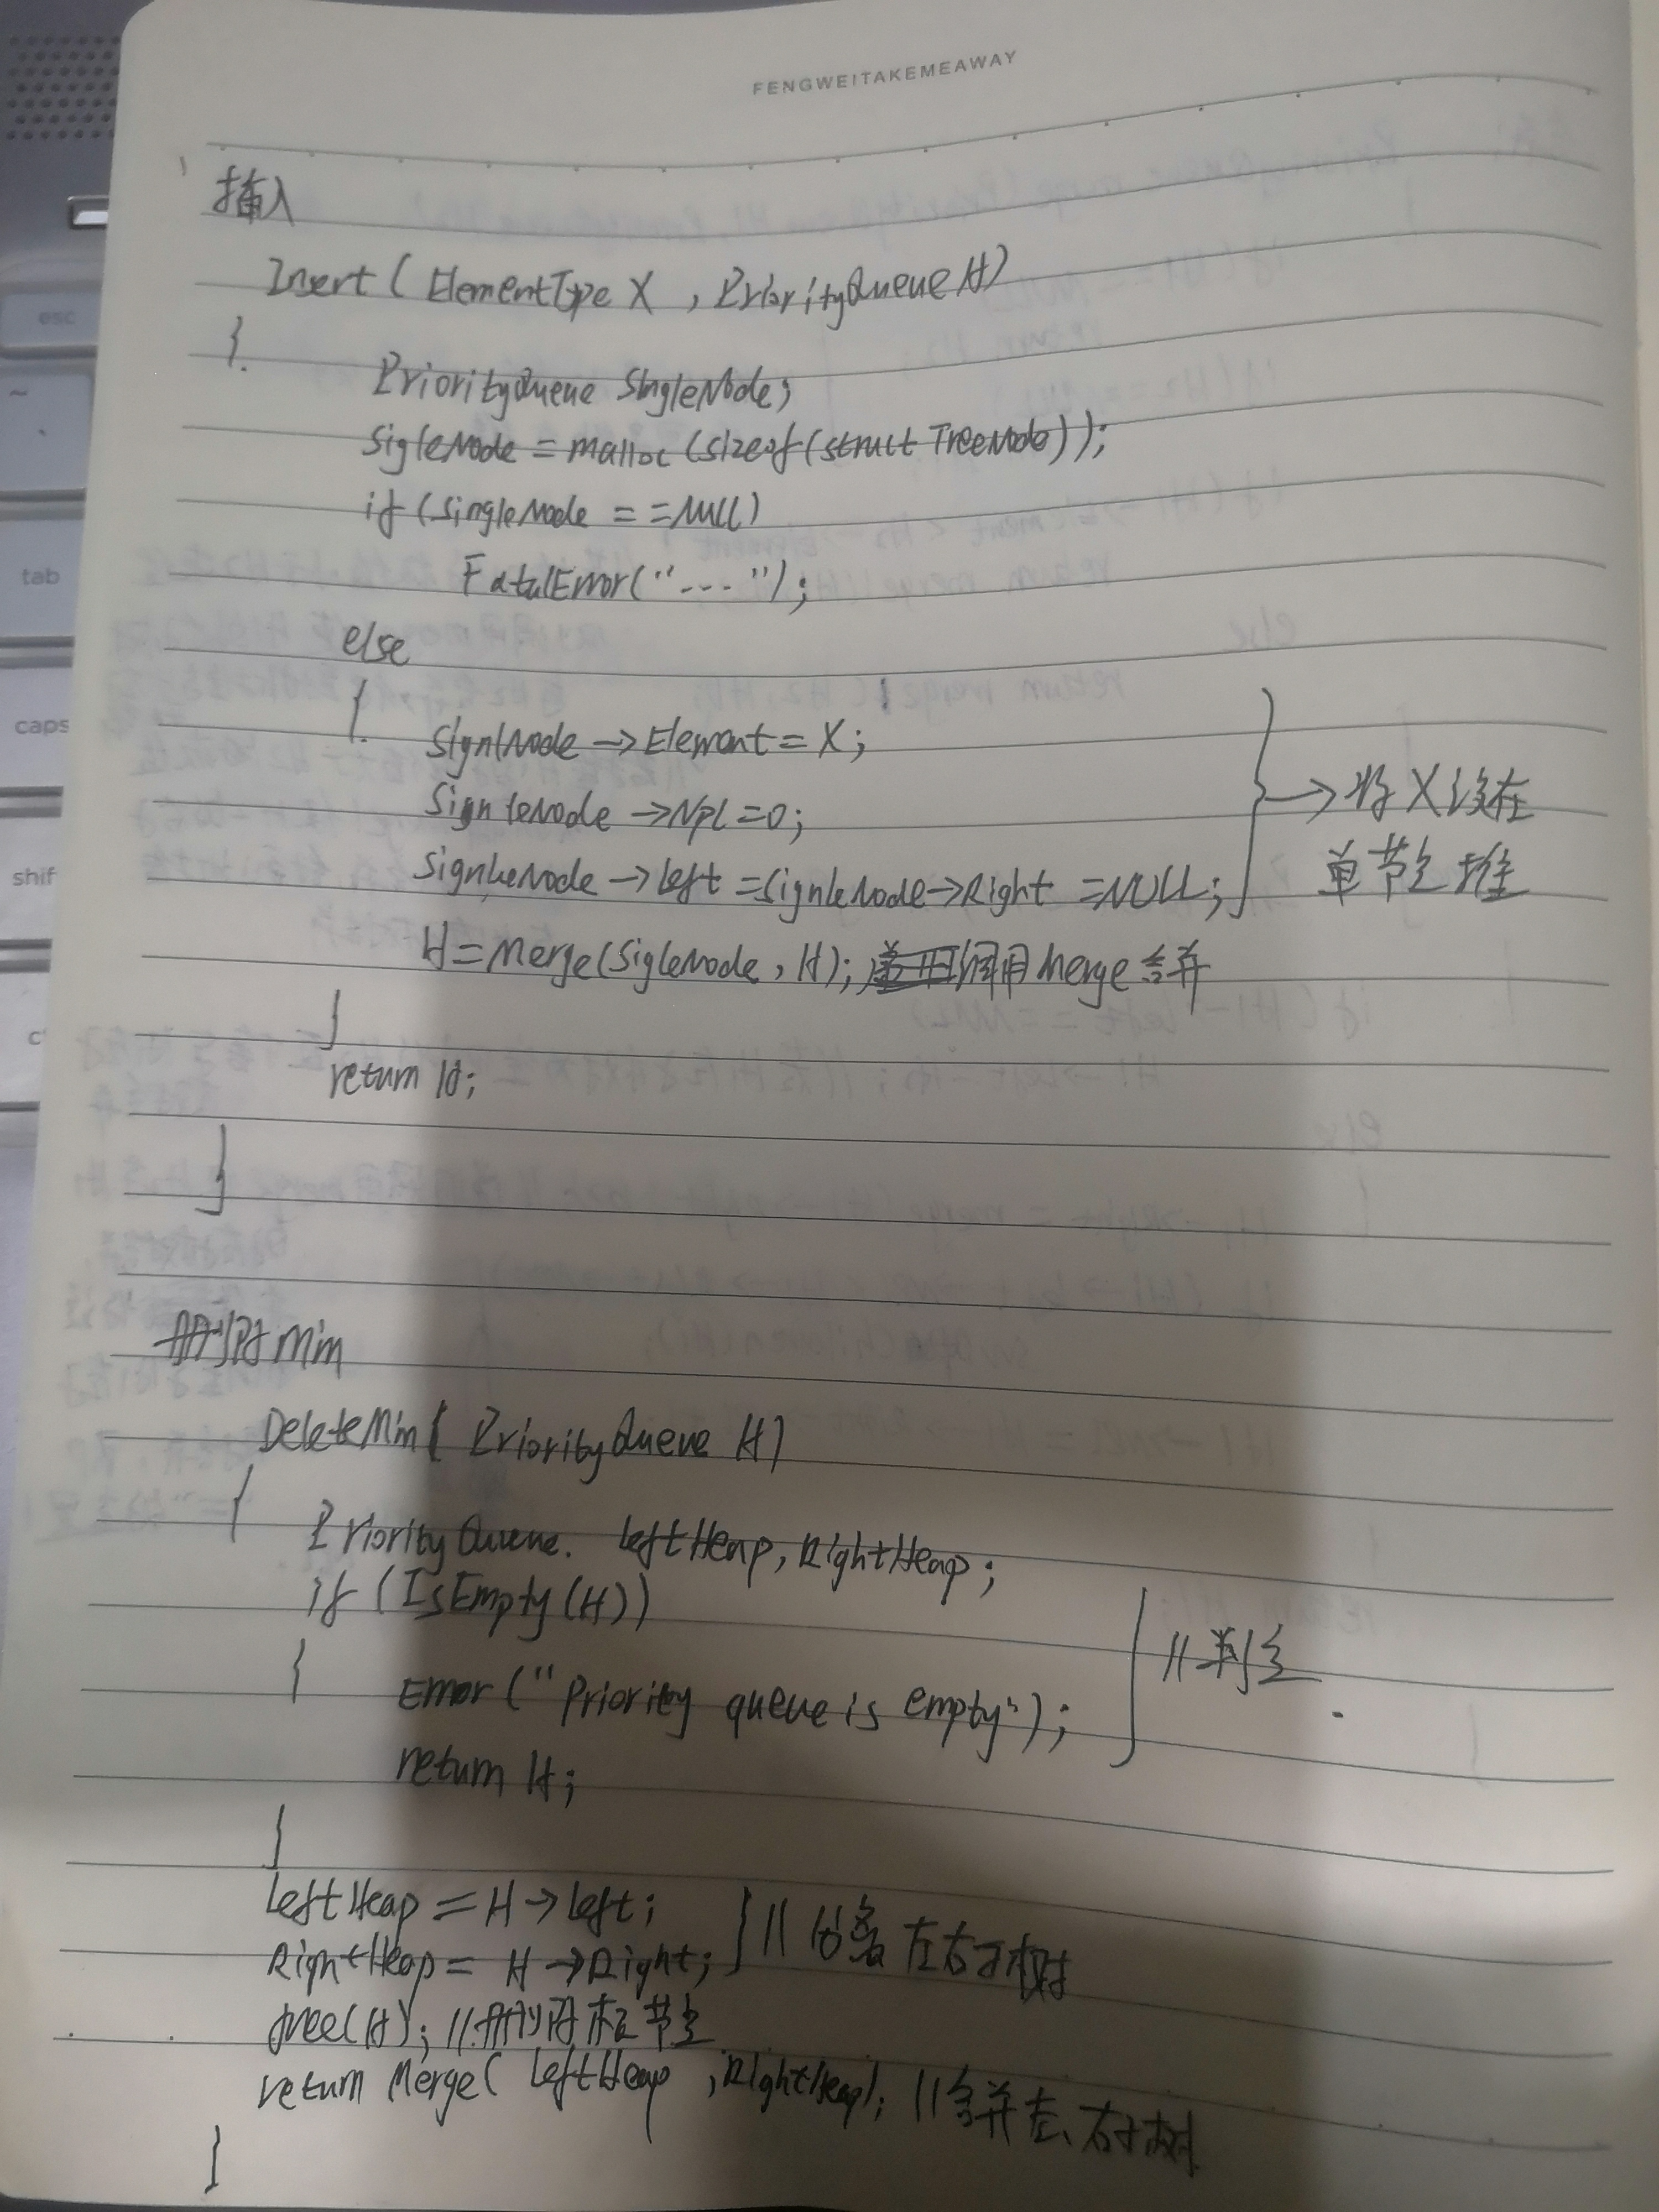 FENGWEITAKEMEAWAY
插入
Insert ( ElementType X , PriorityQueue H)
{
PriorityQueue SingleNode;
SigleNode = malloc (sizeof(struct TreeNode));
if (SingleNode = = NULL)
FatalError("---");
else
{
SignlNode → Element = X;
SignleNode → Npl = 0;
SignleNode → Left = SignleNode → Right = NULL;
→ 将X设在
单节点堆
H = Merge(SigleNode , H); 调用Merge合并
}
return H;
}
删除Min
DeleteMin( PriorityQueue H)
{
PriorityQueue. LeftHeap, RightHeap;
if (IsEmpty(H))
{
Error ("Priority queue is empty");
return H;
//判空
}
LeftHeap = H → Left;
RightHeap = H → Right;
// 储备左右子树
free(H); //删除根节点
return Merge( LeftHeap , RightHeap); //合并左、右子树
}